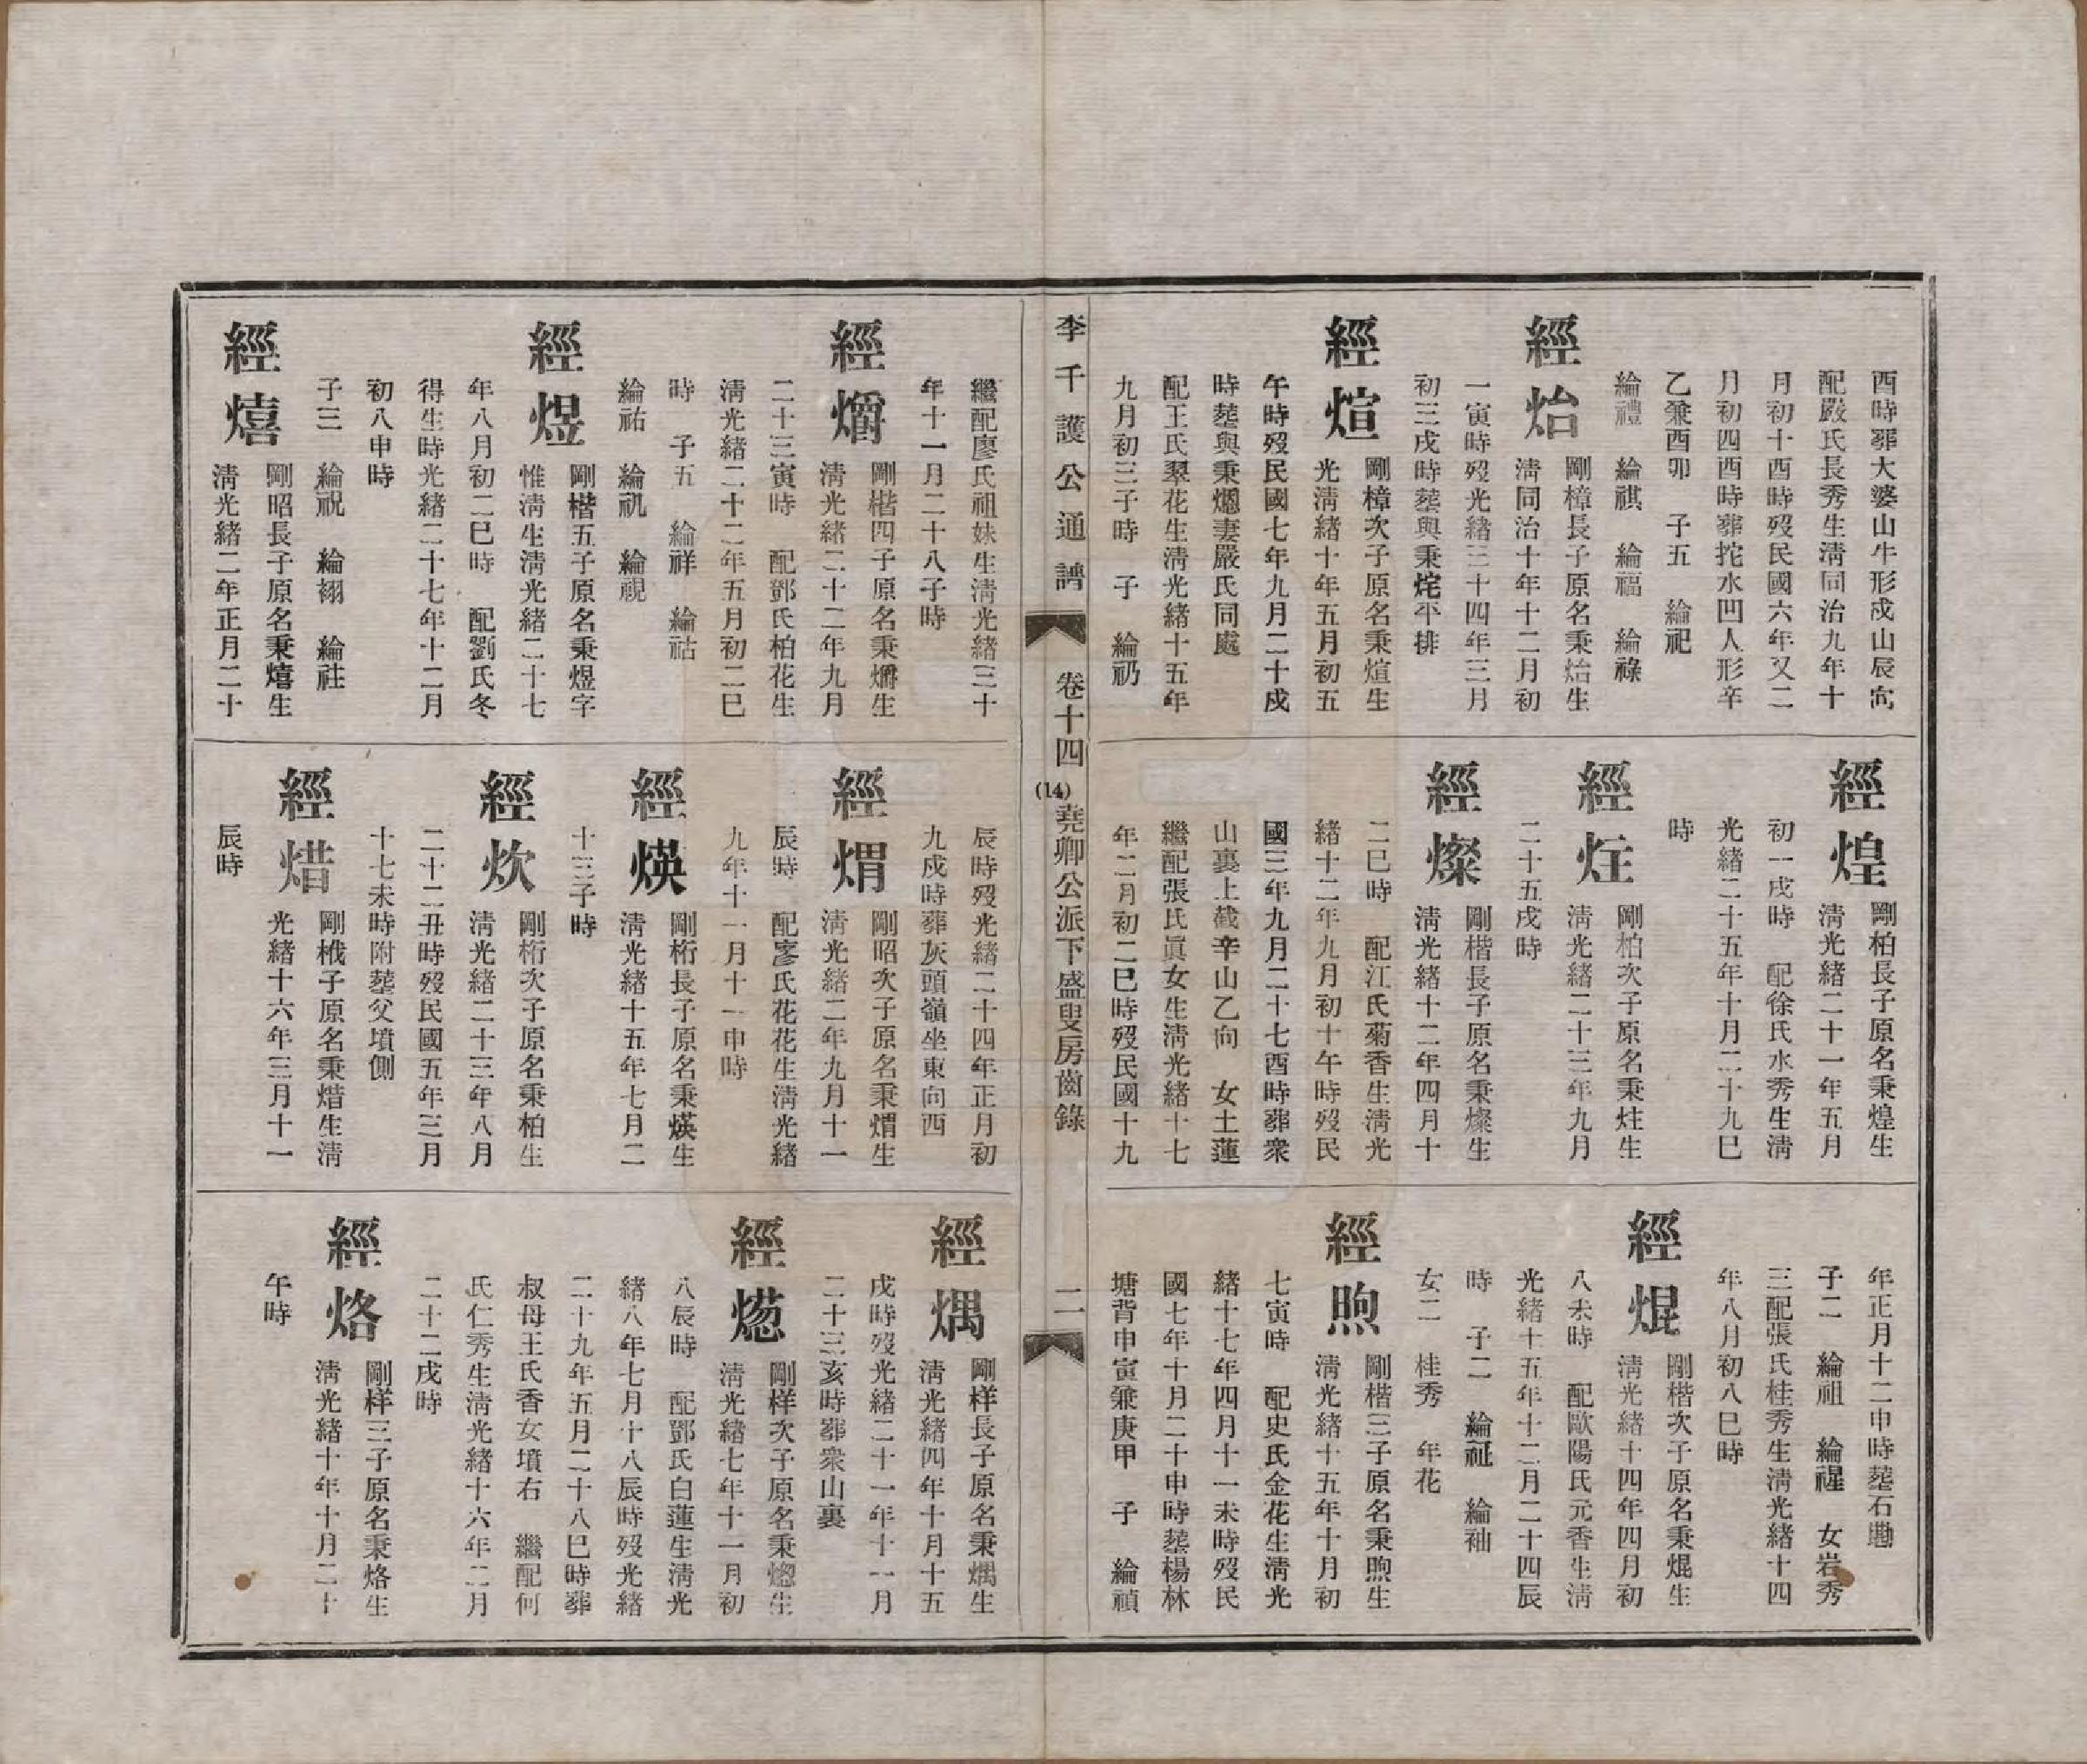 酉時葬大婆山牛形戍山辰向
配嚴氏長秀生淸同治九年十
月初十酉時歿民國六年又二
月初四酉時葬挓水凹人形辛
乙兼酉卯 子五 綸祀
綸禮 綸祺 綸福 綸祿
經炲
剛樟長子原名秉炲生
淸同治十年十二月初
一寅時歿光緒三十四年三月
初三戌時塟與秉烢平排
經煊
剛樟次子原名秉煊生
光淸緒十年五月初五
午時歿民國七年九月二十戍
時塟與秉爋妻嚴氏同處
配王氏翠花生淸光緒十五年
九月初三子時 子 綸礽
經煌
剛柏長子原名秉煌生
淸光緒二十一年五月
初一戍時 配徐氏水秀生淸
光緒二十五年十月二十九巳
時
經炷
剛柏次子原名秉炷生
淸光緒二十三年九月
二十五戍時
經燦
剛楷長子原名秉燦生
淸光緒十二年四月十
二巳時 配江氏菊香生淸光
緒十二年九月初十午時歿民
國三年九月二十七酉時葬衆
山裏上截辛山乙向 女土蓮
繼配張氏眞女生淸光緒十七
年二月初二巳時歿民國十九
年正月十二申時塟石壪
子二 綸祖 綸禋 女岩秀
三配張氏桂秀生淸光緒十四
年八月初八巳時
經焜
剛楷次子原名秉焜生
淸光緒十四年四月初
八未時 配歐陽氏元香生淸
光緒十五年十二月二十四辰
時 子二 綸祉 綸袖
女二 桂秀 年花
經煦
剛楷三子原名秉煦生
淸光緒十五年十月初
七寅時 配史氏金花生淸光
緒十七年四月十一未時歿民
國七年十月二十申時塟楊林
塘背申寅兼庚甲 子 綸禎
李千護公通譜 卷十四 (14) 堯卿公派下盛叟房齒錄 二
繼配廖氏祖妹生淸光緒三十
年十一月二十八子時
經爝
剛楷四子原名秉爝生
淸光緒二十二年九月
二十三寅時 配鄧氏柏花生
淸光緒二十二年五月初二巳
時 子五 綸祥 綸祜
綸祐 綸礽 綸視
經煜
剛楷五子原名秉煜字
惟淸生淸光緒二十七
年八月初二巳時 配劉氏冬
得生時光緒二十七年十二月
初八申時
子三 綸祝 綸祤 綸社
經熺
剛昭長子原名秉熺生
淸光緒二年正月二十
辰時歿光緒二十四年正月初
九戍時葬灰頭嶺坐東向西
經煟
剛昭次子原名秉煟生
淸光緒二年九月十一
辰時 配廖氏花花生淸光緒
九年十一月十一申時
經煐
剛桁長子原名秉煐生
淸光緒十五年七月二
十三子時
經炊
剛桁次子原名秉柏生
淸光緒二十三年八月
二十二丑時歿民國五年三月
十七未時附塟父墳側
經焟
剛栰子原名秉焟生淸
光緒十六年三月十一
辰時
經燆
剛样長子原名秉燆生
淸光緒四年十月十五
戍時歿光緒二十一年十一月
二十三亥時葬衆山裏
經熜
剛样次子原名秉熜生
淸光緒七年十一月初
八辰時 配鄧氏白蓮生淸光
緒八年七月十八辰時歿光緒
二十九年五月二十八巳時葬
叔母王氏香女墳右 繼配何
氏仁秀生淸光緒十六年二月
二十二戍時
經烙
剛样三子原名秉烙生
淸光緒十年十月二十
午時